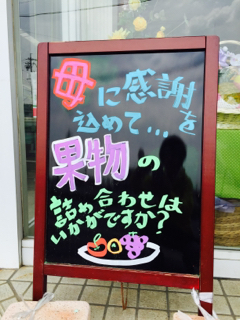 母に感謝を
込めて...
果物の
詰め合わせは
いかがですか?